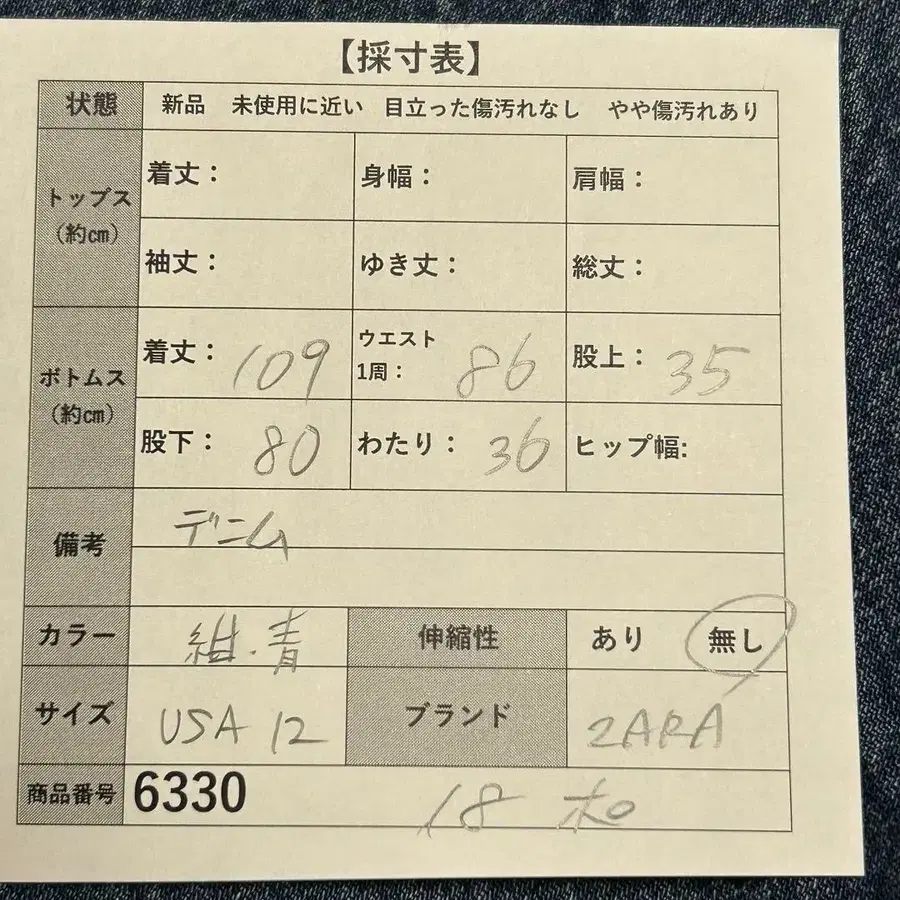 【採寸表】
状態 新品 未使用に近い 目立った傷汚れなし やや傷汚れあり
トップス
(約㎝)
着丈： 身幅： 肩幅：
袖丈： ゆき丈： 総丈：
ボトムス
(約㎝)
着丈： 109 ウエスト
1周： 86 股上： 35
股下： 80 わたり： 36 ヒップ幅:
備考 デニム
カラー 紺.青 伸縮性 あり 無し
サイズ USA 12 ブランド ZARA
商品番号 6330 18